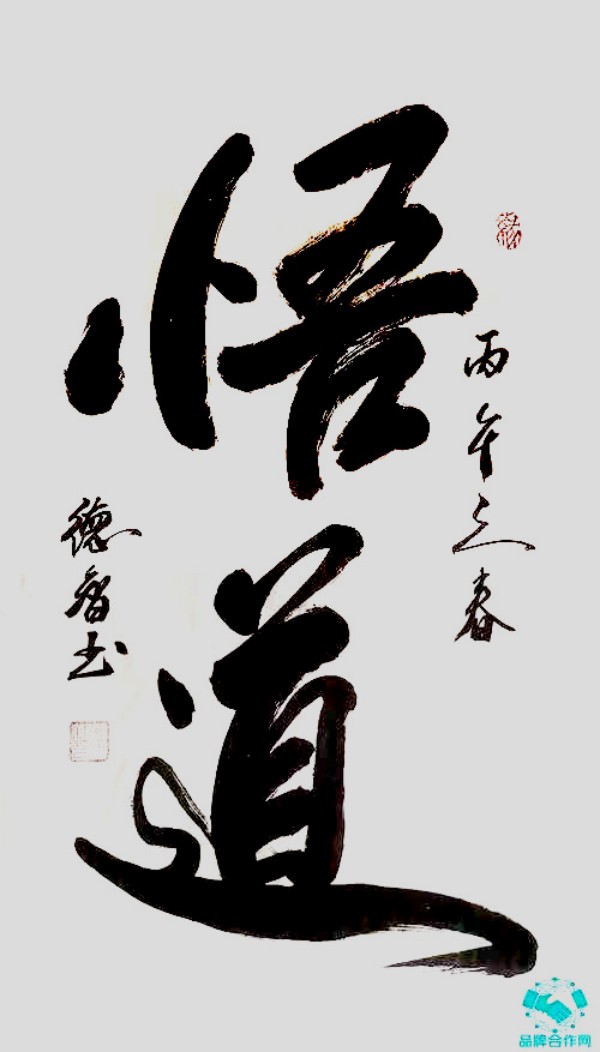 悟道
丙午之春
德智书
品牌合作网